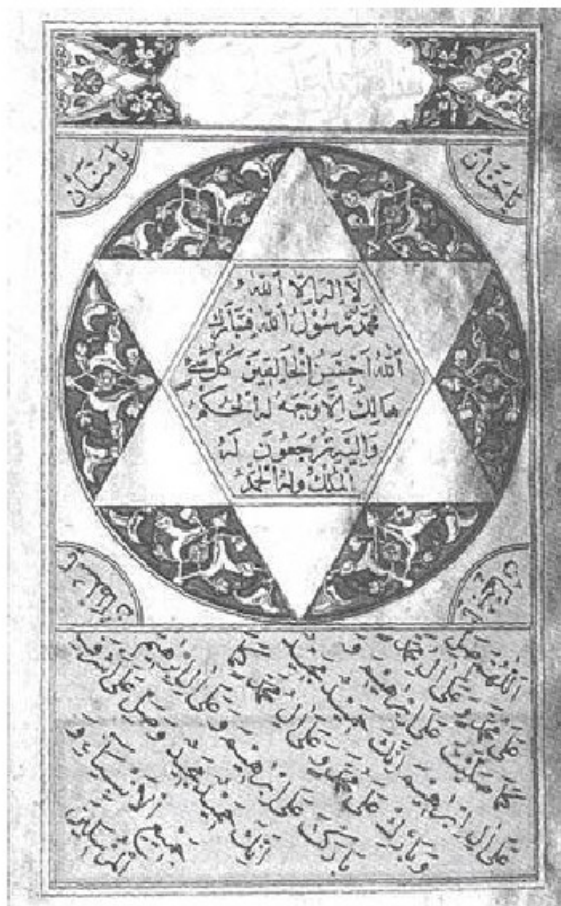 يا حنان
يا منان
لا اله الا الله
محمد رسول الله فتبارك
الله احسن الخالقين كل شئ
هالك الا وجهه له الحكم
واليه ترجعون له
الملك وله الحمد
يا سلطان
اللهم صل
على محمد وعلى آل محمد كما
صليت على ابرهيم و
على آل ابرهيم انك حميد مجيد
وبارك على محمد وعلى آل محمد كما
باركت على ابرهيم وعلى آل ابرهيم
انك حميد مجيد وصل على اشرف
جميع الانبياء و
المرسلين